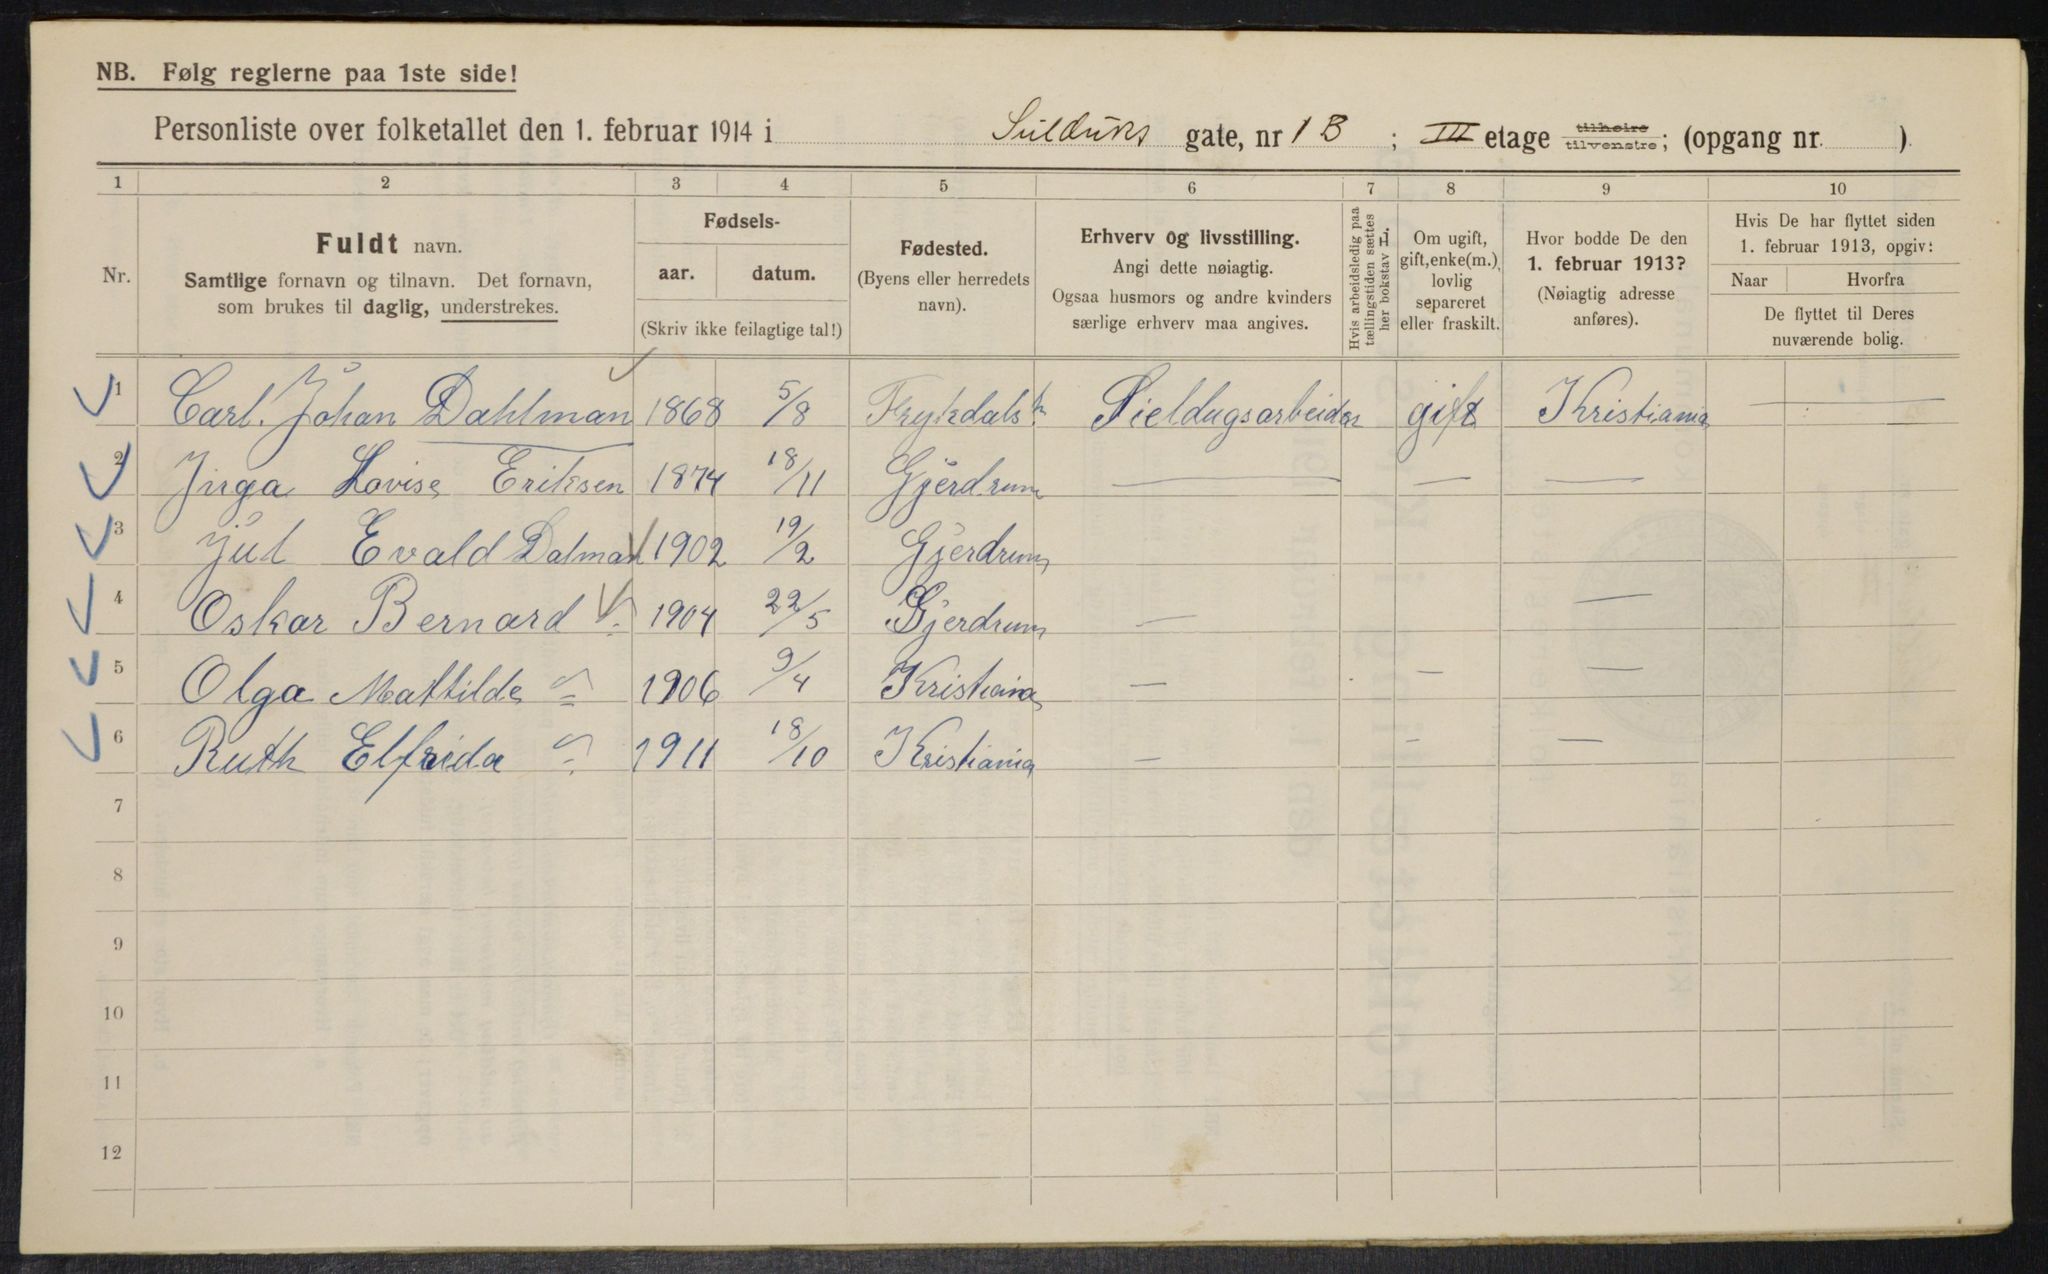 NB. Følg reglerne paa 1ste side!
Personliste over folketallet den 1. februar 1914 i gate, nr 1 B ; III etage tilhøire tilvenstre; (opgang nr. )
1 2 3 4 5 6 7 8 9 10
Nr.
Fuldt navn.
Samtlige fornavn og tilnavn. Det fornavn,
som brukes til daglig, understrekes.
Fødsels-
aar. datum.
(Skriv ikke feilagtige tal!)
Fødested.
(Byens eller herredets
navn).
Erhverv og livsstilling.
Angi dette nøiagtig.
Ogsaa husmors og andre kvinders
særlige erhverv maa angives.
Hvis arbeidsledig paa
tællingstiden sættes
her bokstav L.
Om ugift,
gift, enke(m.),
lovlig
separeret
eller fraskilt.
Hvor bodde De den
1. februar 1913?
(Nøiagtig adresse
anføres).
Hvis De har flyttet siden
1. februar 1913, opgiv:
Naar Hvorfra
De flyttet til Deres
nuværende bolig.
1 Carl. Johan Dahlman 1868 5/8 Frykdals Sieldugsarbeider gift Kristiania —
2 Inga Lovise Eriksen 1874 18/11 Gjerdrum — — —
3 Jul Evald Dalman 1902 19/2 Gjerdrum
4 Oskar Bernard 1904 22/5 Gjerdrum — —
5 Olga Mathilde 1906 9/4 Kristiania — — —
6 Ruth Elfrida 1911 18/10 Kristiania — — —
7
8
9
10
11
12